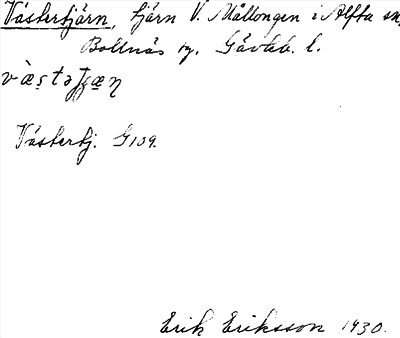 Västertjärn, tjärn V. Mållongen i Alfta sn,
Bollnäs tg. Gävleb. l.
Västertj. G109.
Erik Eriksson 1930.